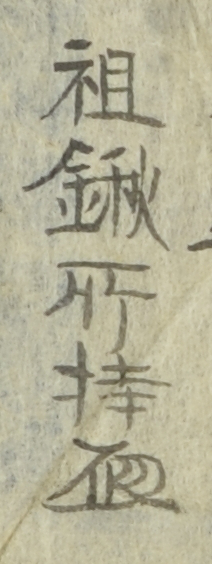 祖鍬所持仕